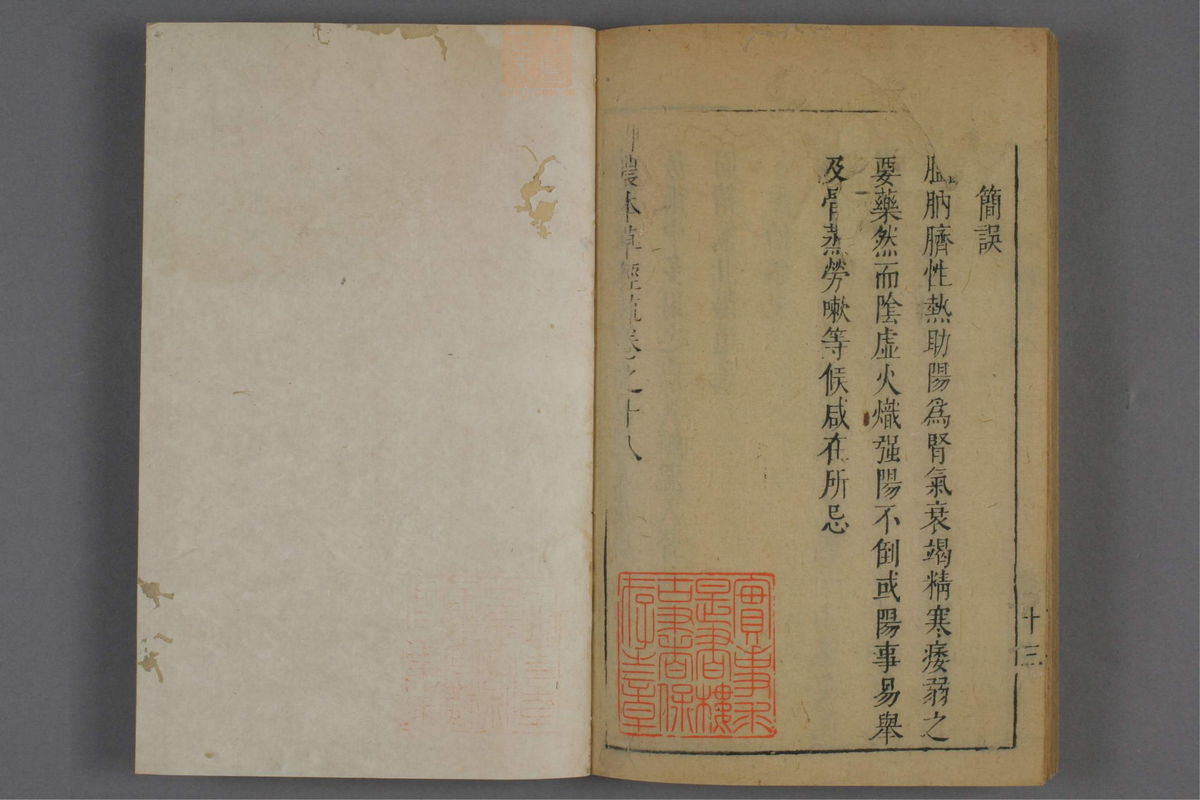 簡誤
膃肭臍性熱助陽爲腎氣衰竭精寒痿弱之
要藥然而陰虛火熾强陽不倒或陽事易舉
及骨蒸勞嗽等候咸在所忌
神農本草經疏卷之十八
十三
實事求
是書樓
古書畫保
存之章